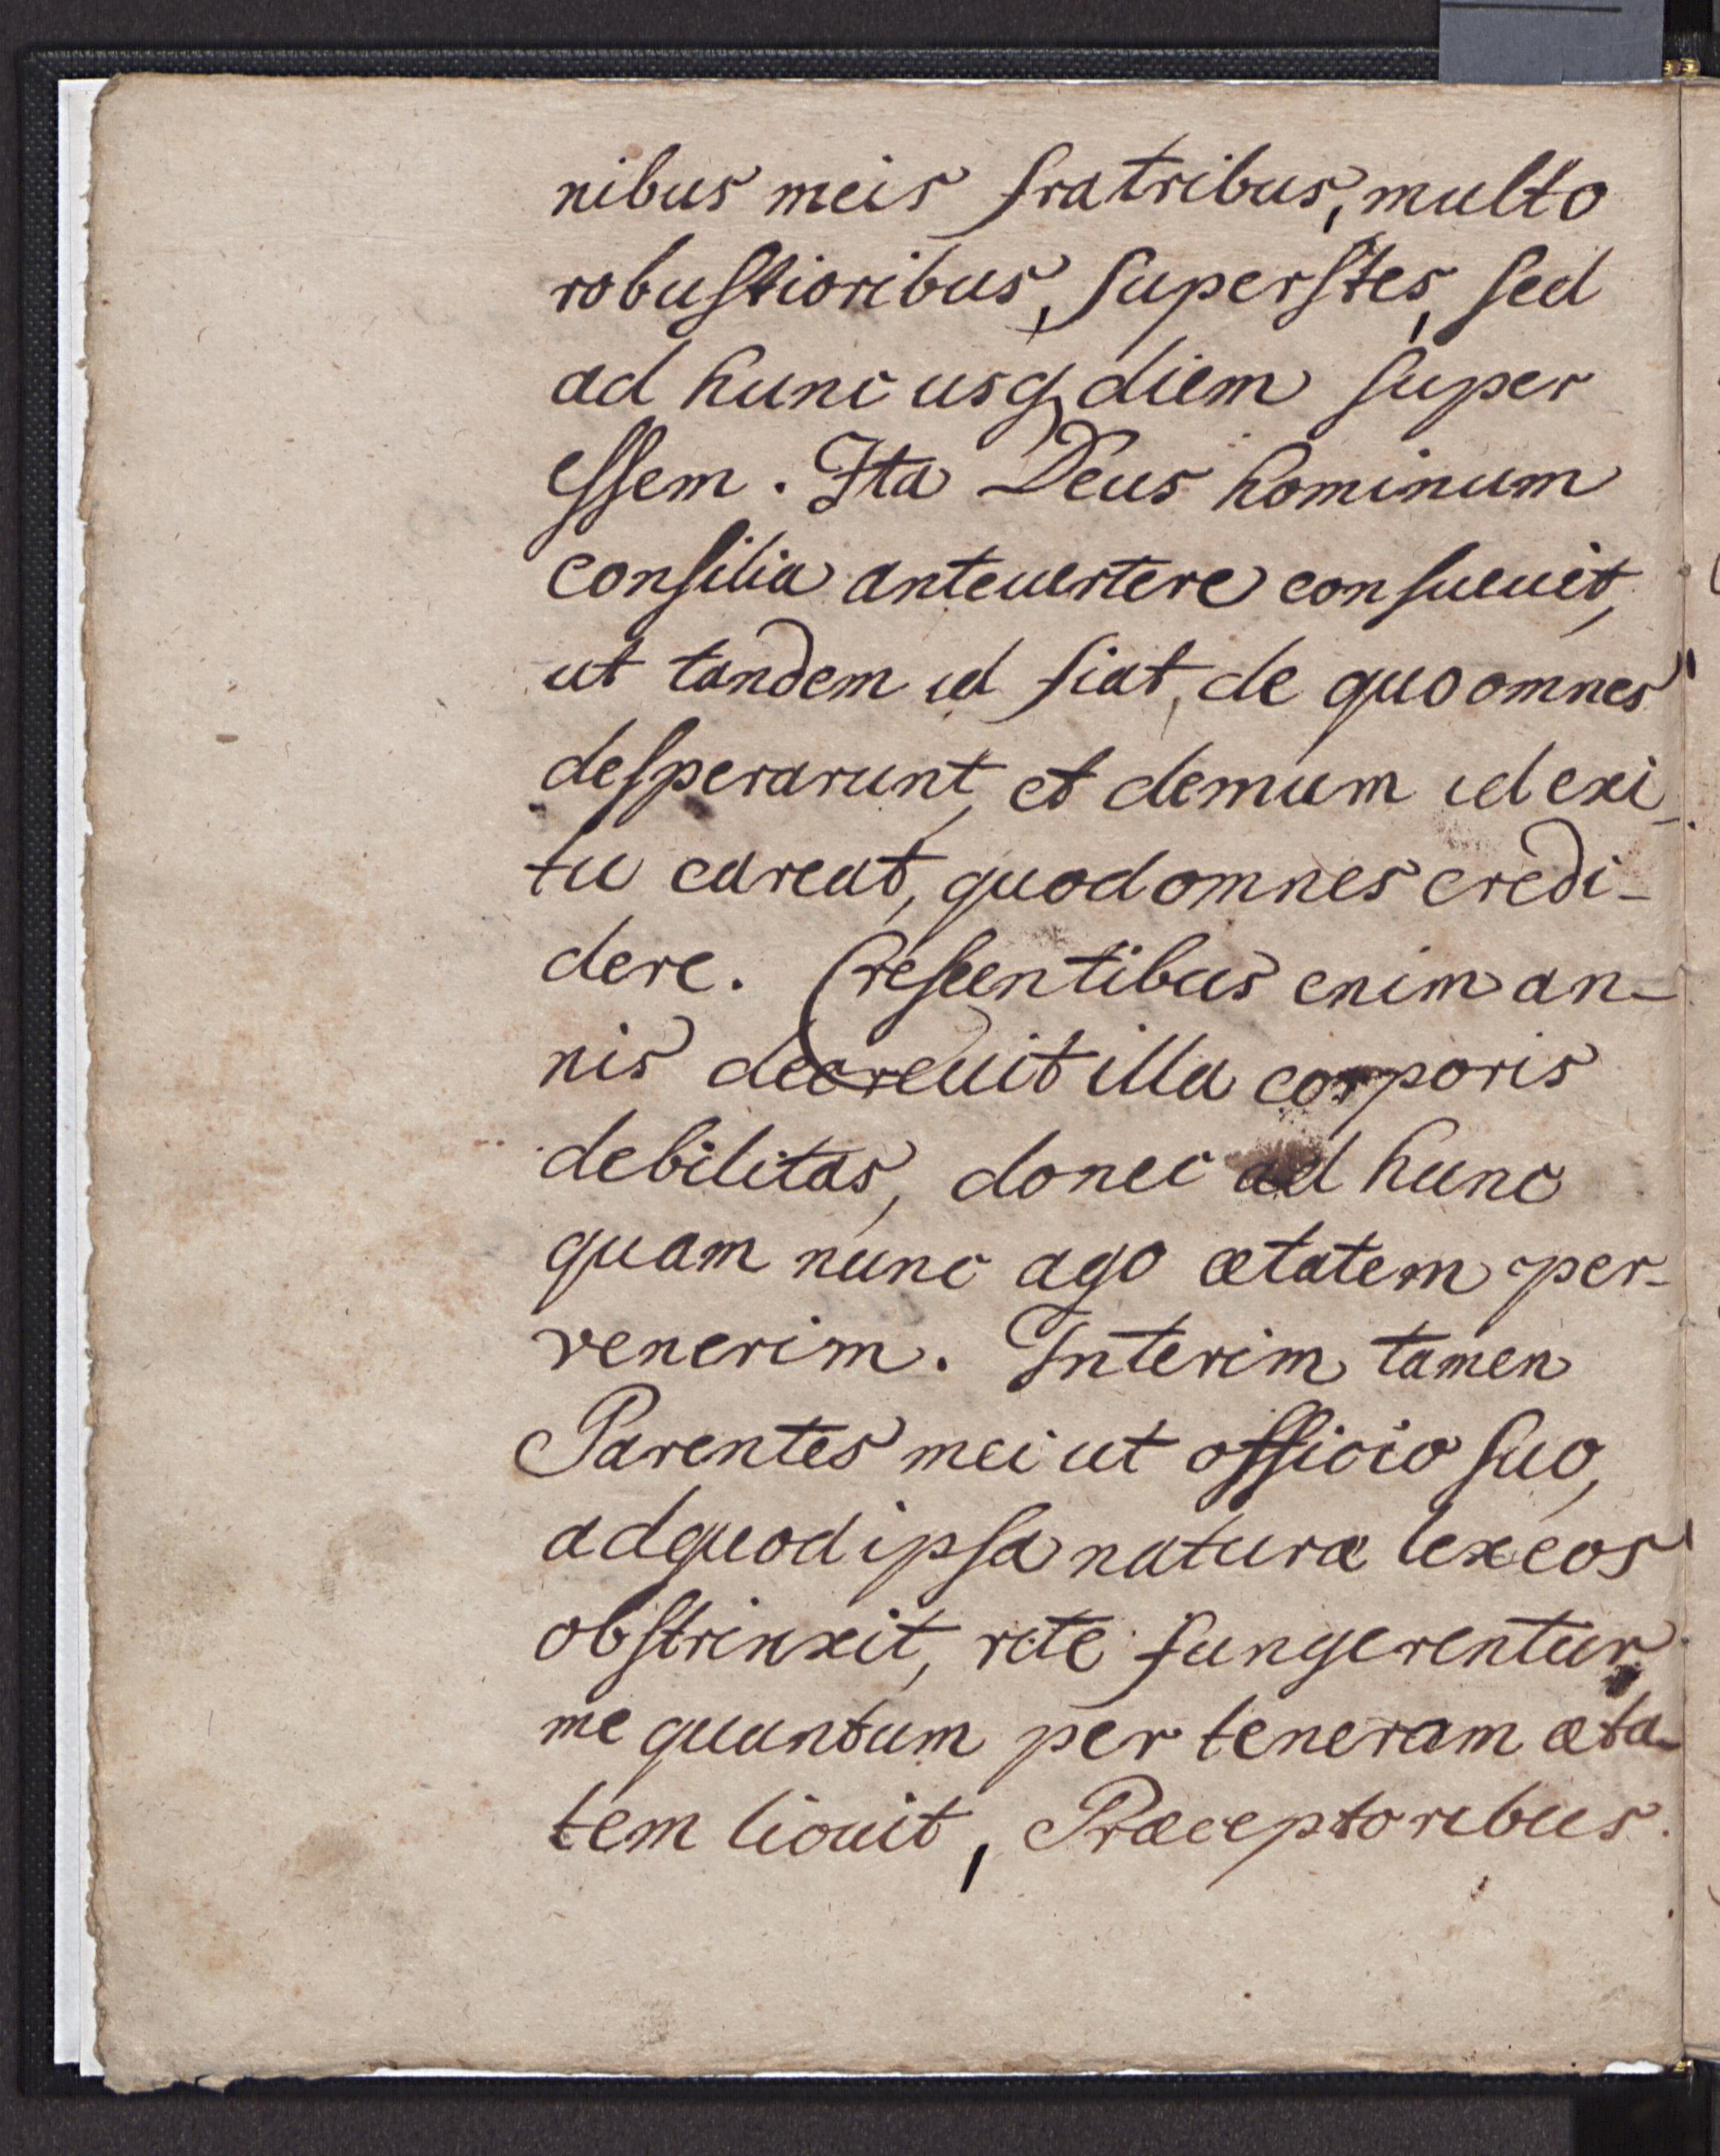 nibus meis fratribus, multo
robustioribus, superstes, sed
ad hunc usq diem super
essem. Ita Deus hominum
consilia anteuertere consueuit,
ut tandem id fiat, de quo omnes
desperarunt, et demum id exi-
tu careat, quod omnes credi-
dere. Crescentibus enim an-
nis decreuit illa corporis
debilitas, donec ad hunc
quam nunc ago ætatem per-
venerim. Interim tamen
Parentes mei ut officio suo,
ad quod ipsa naturæ lex eos
obstrinxit, rite fungerentur,
me quantum per teneram æta-
tem licuit, Præceptoribus